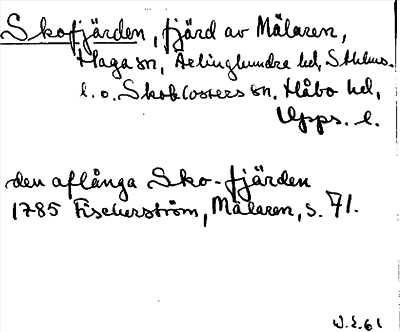 Skofjärden, fjärd av Mälaren,
Haga sn, Ærlinghundra hd, Sthlms.
l. o. Skoklosters sn. Håbo hd,
Upps. l.
den aflånga Sko-fjärden
1785 Fischerström, Mälaren, s. 71.
W.E. 61